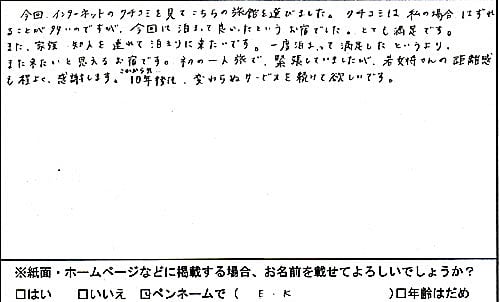 今回、インターネットのクチコミを見てこちらの旅館を選びました。クチコミは私の場合はずれ
ることが多いのですが、今回は泊まって良かったというお宿でした。とても満足です。
また、家族、知人を連れて泊まりに来たいです。一度泊まって満足したというより、
また来たいと思えるお宿です。初の一人旅で、緊張していましたが、若女将さんの距離感
も程よく、感謝します。これから先10年後も、変わらぬサービスを続けて欲しいです。
※紙面・ホームページなどに掲載する場合、お名前を載せてよろしいでしょうか?
□はい □いいえ ☑ペンネームで( E.K )□年齢はだめ